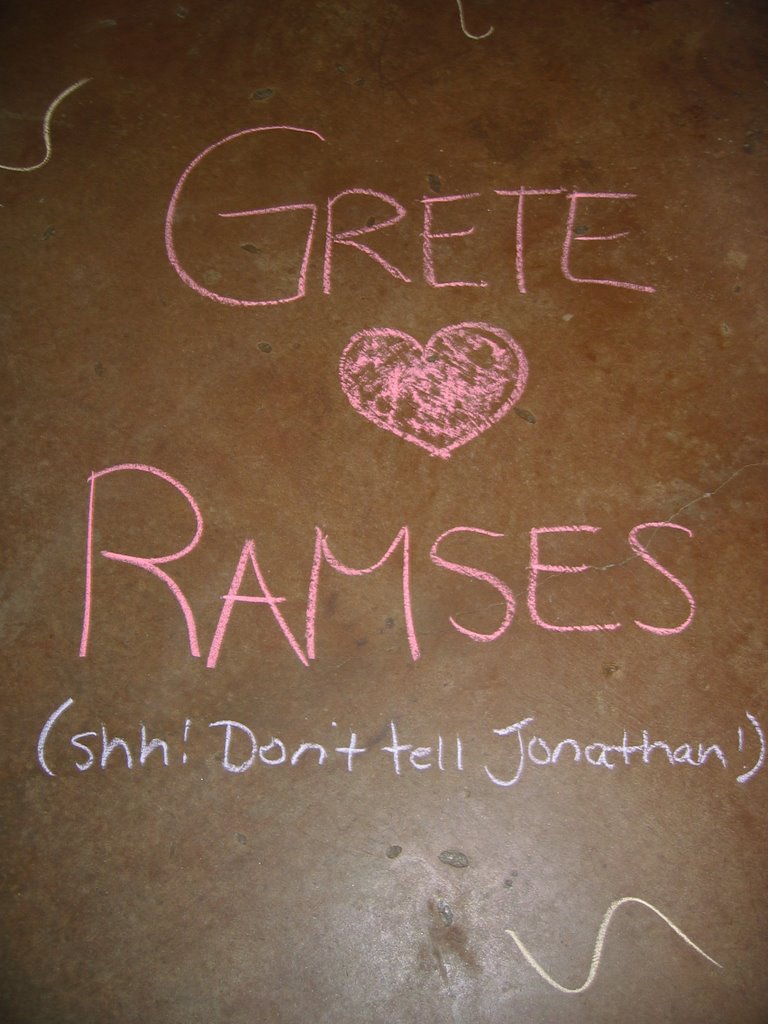 GRETE
RAMSES
(shh! Don't tell Jonathan!)